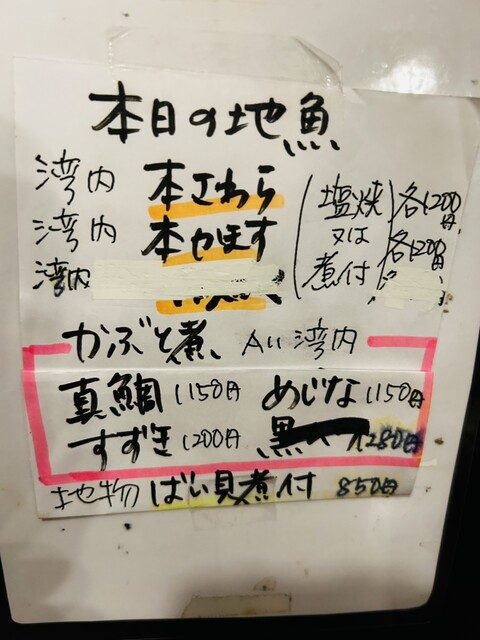 本日の地魚
湾内 本さわら (塩焼 各1200円
湾内 本かます 又は 各1200円
湾内 煮付)
かぶと煮 All 湾内
真鯛 1150円 めじな 1150円
すずき 1200円 黒 1280円
地物 ばい貝煮付 850円